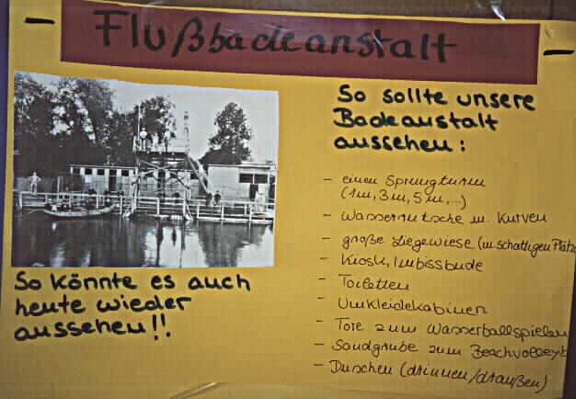 - Flußbadeanstalt -
So sollte unsere
Badeanstalt
aussehen:
- einen Sprungturm
(1m, 3m, 5m,...)
- Wasserrutsche m. Kurven
- große Liegewiese (m. schattigen Plätz
- Kiosk, Imbissbude
- Toiletten
- Umkleidekabinen
- Tore zum Wasserballspielen
- Sandgrube zum Beachvolleyb
- Duschen (drinnen/draußen)
So könnte es auch
heute wieder
aussehen!!